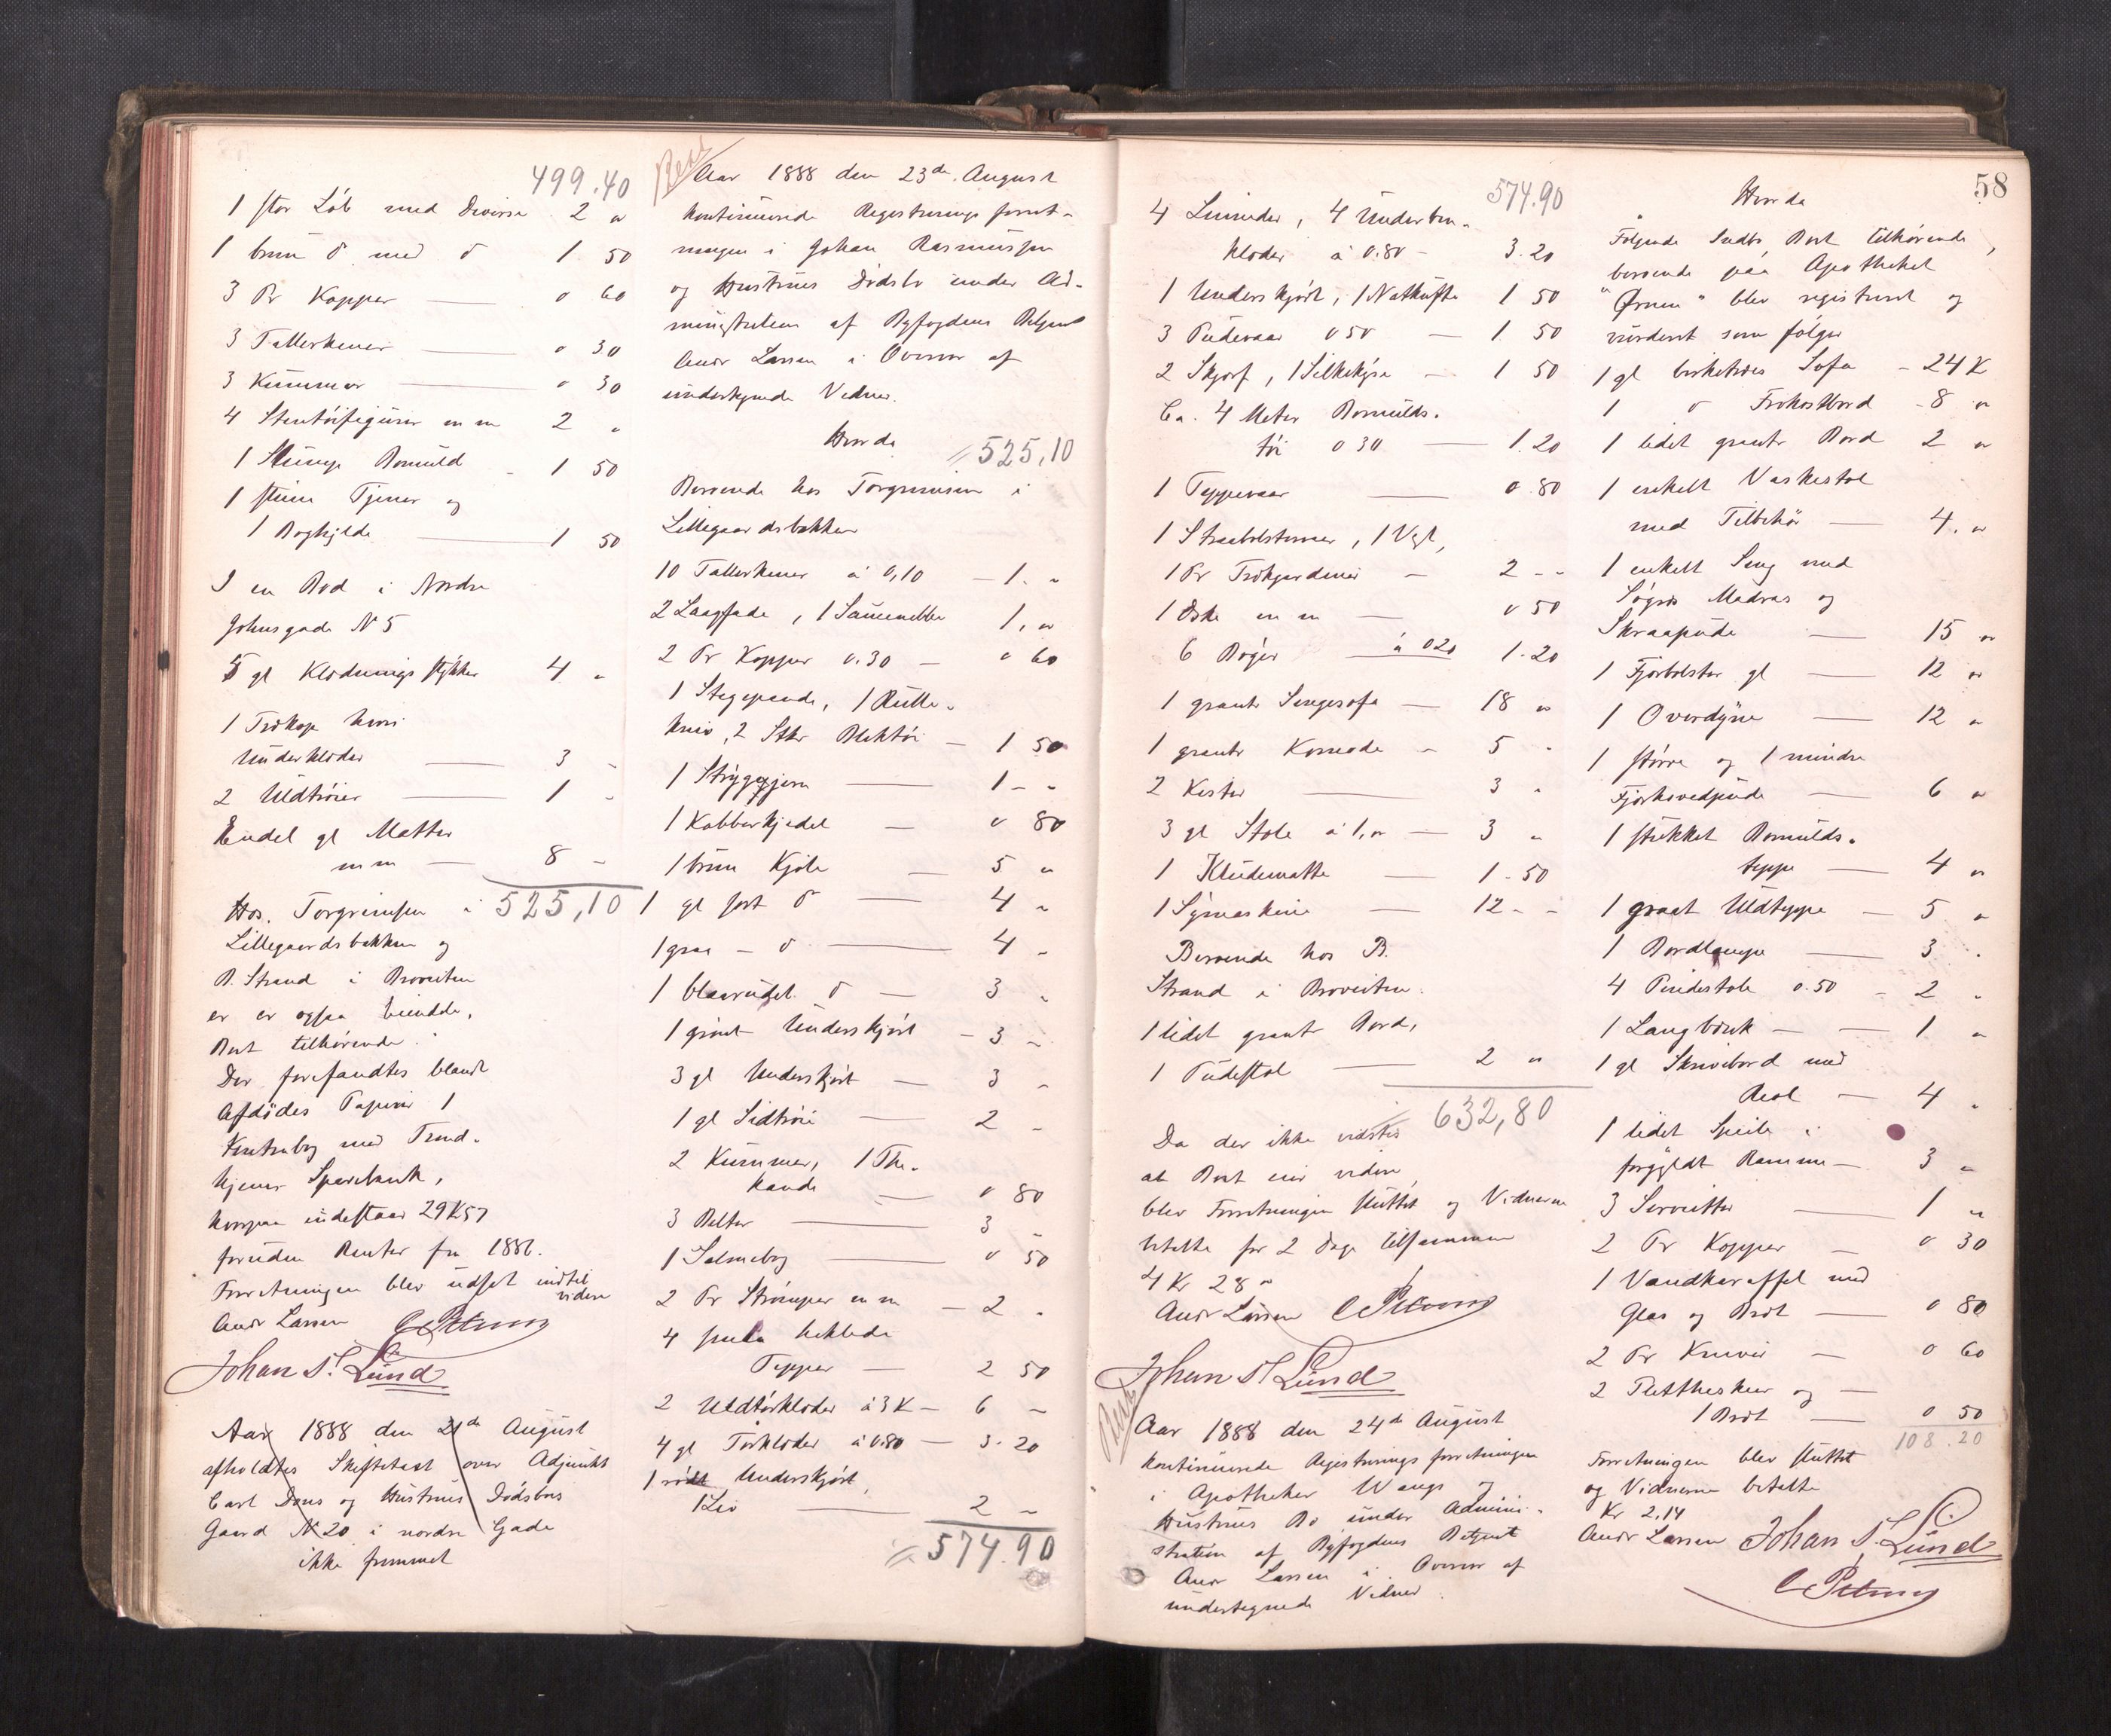 499.40
1 stor Löb med Diverse 2 "
1 brun d med d 1 50
3 Pr Kopper " 60
3 Tallerkener " 30
3 Kummer " 30
4 Stentöifigurer m m 2 "
1 Stump Bomuld 1 50
1 Tjener og
1 Boghylde 1 50
I en Bod i Nordre
Johnsgade N 5
5 gl Klædningsstykker 4 "
1 hvori
Underklæder 3 "
2 Uldtröier 1 "
Endel gl Matter
m m 8 "
525,10
Hos Torgrimsen i
Lillegaardsbakken og
B. Strand i Broveiten
er er ogsaa
Boet tilhörende.
Der forefandtes blandt
Afdödes Papirer 1
Kontrabog med Trond-
hjems Sparebank,
hvorpaa indestaar 29 K 57
foruden Renter fra 1886.
Forretningen blev udsat indtil
videre
Andr Larsen C Petersen
Johan S. Lund
Aar 1888 den 21de August
afholdtes Skiftetaxt over Adjunkt
Carl Dons og Hustrues Dödsbos
Gaard N 20 i nordre Gade
ikke fremmet
Aar 1888 den 23de August
kontinuerede Registreringsforret-
ningen i Johan Rasmussen
og Hustrues Dödsbo under Ad-
ministration af Byfogdens Betjent
Andr Larsen i Overvær af
undertegnede Vidner.
Hvorda
525,10
Beroende hos Torgrimsen i
Lillegaardsbakken
10 Tallerkener à 0,10 1. "
2 Laagfade, 1 Sausenebbe 1, "
2 Pr Kopper 0.30 " 60
1 Stegepande, 1 Rulle-
kniv, 2 Stkr Bliktöi 1 50
1 Strygejern 1 - "
1 Kobberkjedel " 80
1 brun Kjole 5 "
1 gl sort d 4 "
1 graa - d 4 "
1 blaarudet d 3 "
1 grönt Underskjört 3 "
3 gl Underskjört 3 "
1 gl Sidtröie 2 "
2 Kummer, 1 The-
kande " 80
3 Belter 3 "
1 Salmebog " 50
2 Pr Strömper m m 2 "
4 smaa heklede
Tepper 2 50
2 Uldtörklæder à 3 K 6 "
4 gl Törklæder à 0.80 3.20
1 rödt Underskjört,
1 Liv 2 "
574.90
574.90
4 Linneder, 4 Underben-
klæder à 0.80 3.20
1 Underskjört, 1 Nattröie 1 50
3 Pudevaar 0 50 1 50
2 Skjerf, 1 Silkekyse 1 50
Ca. 4 Meter Bomulds-
töi 0 30 1.20
1 Teppevaar 0.80
1 Straabolstervaar, 1 Vegt,
1 Pr Trækgardiner 2 - "
1 Æske m m " 50
6 Böger à 0 20 1.20
1 grantr Sengesofa 18 "
1 grantr Komode 5 "
2 Kister 3 "
3 gl Stole à 1, " 3 "
1 Kludematte 1 - 50
1 Symaskine 12 - "
Beroende hos B.
Strand i Broveiten.
1 lidet grantr Bord,
1 Pudestol 2 "
632,80
Da der ikke vidstes
at Boet eier videre,
blev Forretningen sluttet og Vidnerne
betalte for 2 Dage tilsammen
4 Kr 28 "
Andr Larsen C Petersen
Johan S Lund
Aar 1888 den 24de August
kontinuerede Registreringsforretningen
i Apotheker Wangs og
Hustrues Bo under Admini-
stration af Byfogdens Betjent
Andr Larsen i Overvær af
undertegnede Vidner.
58
Hvorda
Fölgende Indbo, Boet tilhörende,
beroende paa Apotheket
"Örnen" blev registreret og
vurderet som fölger
1 gl birketræes Sofa 24 K
1 d Frokostbord 8 "
1 lidet grantr Bord 2 "
1 enkelt Vaskestol
med Tilbehör 4. "
1 enkelt Seng med
Sögræs Madras og
Skraapude 15 "
1 Fjærbolster gl 12 "
1 Overdyne 12 "
1 större og 1 mindre
Fjærhovedpude 6 "
1 strikket Bomulds-
teppe 4 "
1 graat Uldteppe 5 "
1 Bordlampe 3 "
4 Pindestole 0.50 2 "
1 Langbænk 1 "
1 gl Skrivebord med
Reol 4 "
1 lidet Speile i
forgyldt Ramme 3 "
3 Servietter 1 "
2 Pr Kopper " 30
1 Vandkaraffel med
Glas og Bræt " 80
2 Pr Kniver " 60
2 Pletttheskeer og
1 Bræt " 50
108.20
Forretningen blev sluttet
og Vidnerne betalte
Kr 2,14
Andr Larsen Johan S. Lund
C Petersen